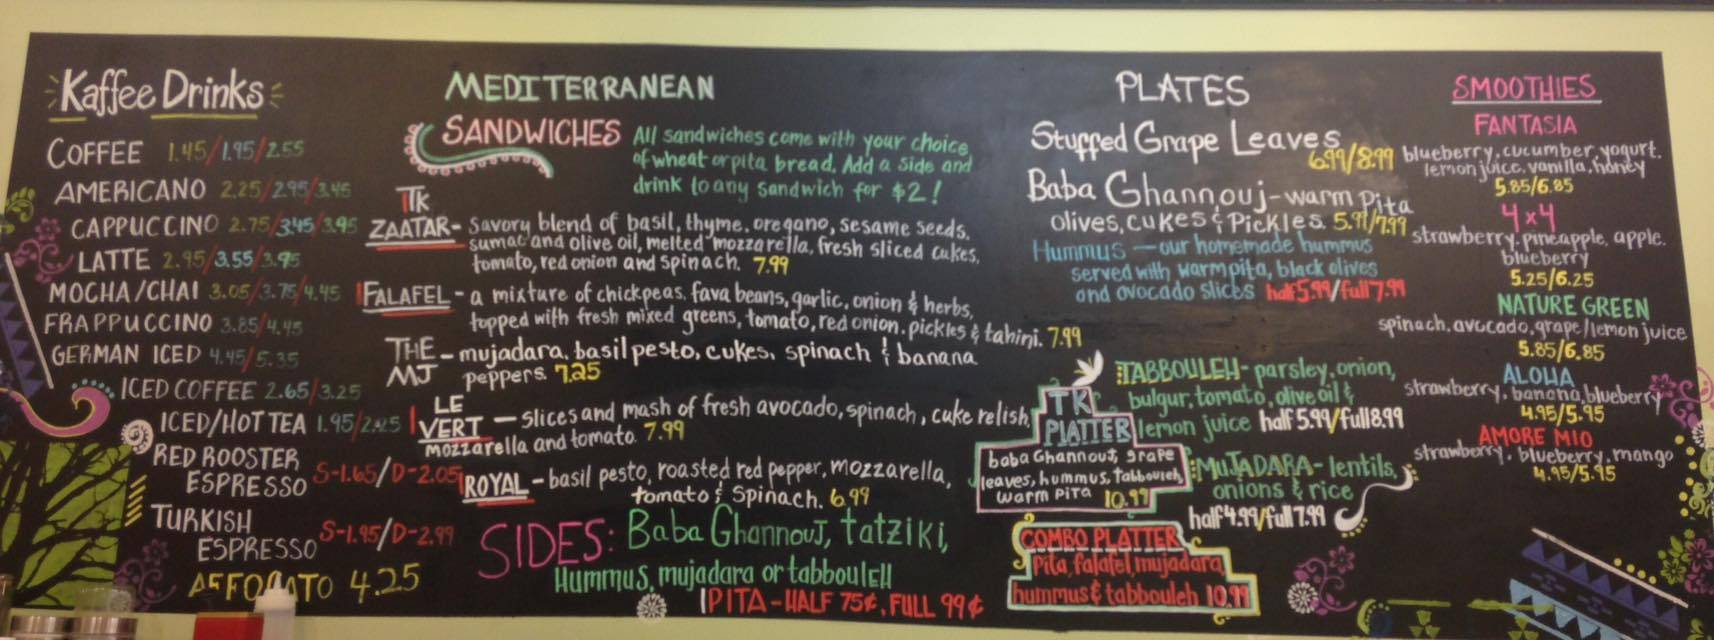 Kaffee Drinks
COFFEE 1.45/1.95/2.55
AMERICANO 2.25/2.95/3.45
CAPPUCCINO 2.75/3.45/3.95
LATTE 2.95/3.55/3.95
MOCHA/CHAI 3.05/3.75/4.45
FRAPPUCCINO 3.85/4.45
GERMAN ICED 4.45/5.35
ICED COFFEE 2.65/3.25
ICED/HOT TEA 1.95/2.45
RED ROOSTER
ESPRESSO S-1.65/D-2.05
TURKISH
ESPRESSO S-1.95/D-2.99
AFFOGATO 4.25
MEDITERRANEAN
SANDWICHES
All sandwiches come with your choice
of wheat or pita bread. Add a side and
drink to any sandwich for $2!
TK
ZAATAR- Savory blend of basil, thyme, oregano, sesame seeds,
sumac and olive oil, melted mozzarella, fresh sliced cukes,
tomato, red onion and spinach. 7.99
FALAFEL - a mixture of chickpeas, fava beans, garlic, onion & herbs,
topped with fresh mixed greens, tomato, red onion, pickles & tahini. 7.99
THE
MJ - mujadara, basil pesto, cukes, spinach & banana
peppers. 7.25
LE
VERT - slices and mash of fresh avocado, spinach, cuke relish,
mozzarella and tomato. 7.99
ROYAL - basil pesto, roasted red pepper, mozzarella,
tomato & Spinach. 6.99
SIDES: Baba Ghannouj, tatziki,
Hummus, mujadara or tabbouleh
PITA - HALF 75¢, FULL 99¢
PLATES
Stuffed Grape Leaves
6.99/8.99
Baba Ghannouj - warm Pita
olives, cukes & Pickles. 5.99/7.99
Hummus - our homemade hummus
served with warm pita, black olives
and avocado slices half 5.99/full 7.99
TABBOULEH - parsley, onion,
bulgur, tomato, olive oil &
lemon juice half 5.99/full 8.99
TK
PLATTER
baba Ghannouj, grape
leaves, hummus, tabbouleh,
warm pita 10.99
MUJADARA - lentils,
onions & rice
half 4.99/full 7.99
COMBO PLATTER
Pita, falafel, mujadara,
hummus & tabbouleh 10.99
SMOOTHIES
FANTASIA
blueberry, cucumber, yogurt,
lemon juice, vanilla, honey
5.85/6.85
4x4
strawberry, pineapple, apple,
blueberry
5.25/6.25
NATURE GREEN
spinach, avocado, grape/lemon juice
5.85/6.85
ALOHA
strawberry, banana, blueberry
4.95/5.95
AMORE MIO
strawberry, blueberry, mango
4.95/5.95